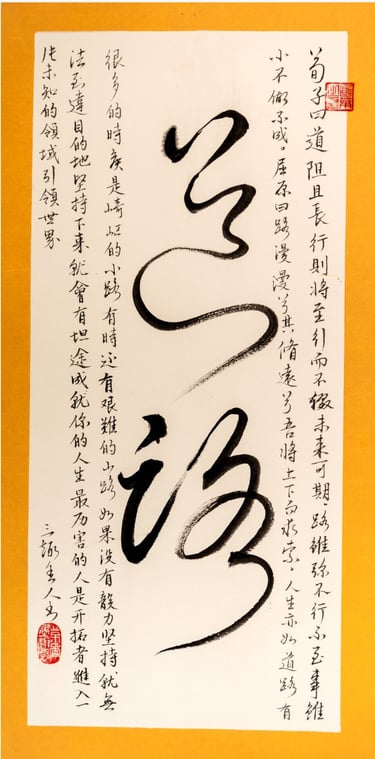 荀子曰道阻且長行則將至引而不輟未来可期、路雖弥不行不至事雖
小不做不成。屈原曰路漫漫兮其脩遠兮吾將上下而求索。人生亦如道路有
道路
很多的時候是崎岖的小路有時还有艰難的山路如果没有毅力坚持就無
法到達目的地坚持下来就會有坦途成就你的人生最历害的人是开拓者進入一
片未知的領域引領世界